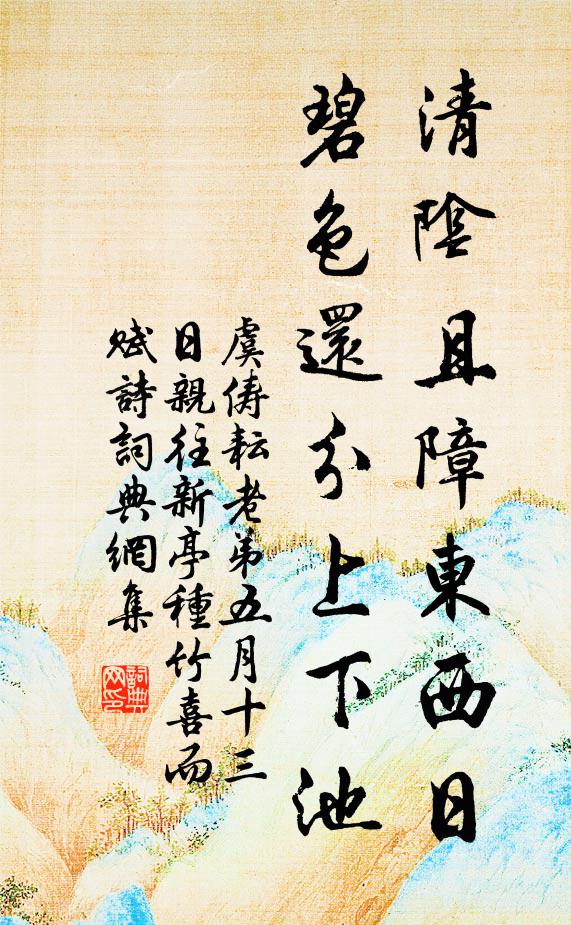 清陰且障東西日
碧色還分上下池
虞儔耘老弟五月十三
日親往新亭種竹喜而
賦詩詞典網集
詞典
网印